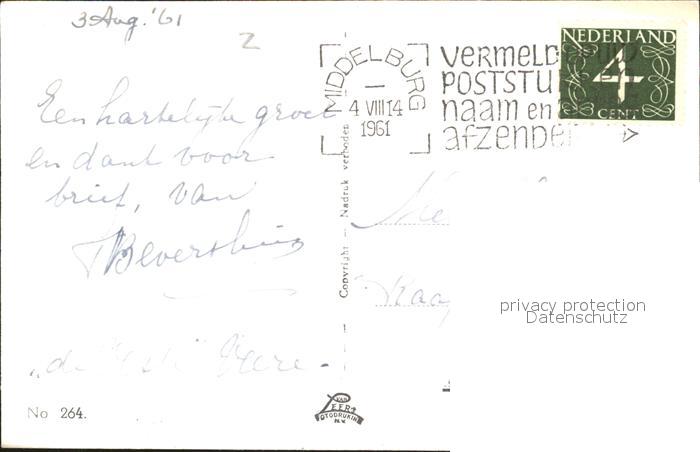 3 Aug. '61
2
Een hartelijke groet
en dank voor
brief, van
Copyright — Nadruk verboden
MIDDELBURG
4 VIII 14
1961
VERMELD
POSTSTU
naam en
afzender
NEDERLAND
4
CENT
privacy protection
Datenschutz
"de Veere -
No 264.
VAN
LEER'S
FOTODRUKIN
N.V.